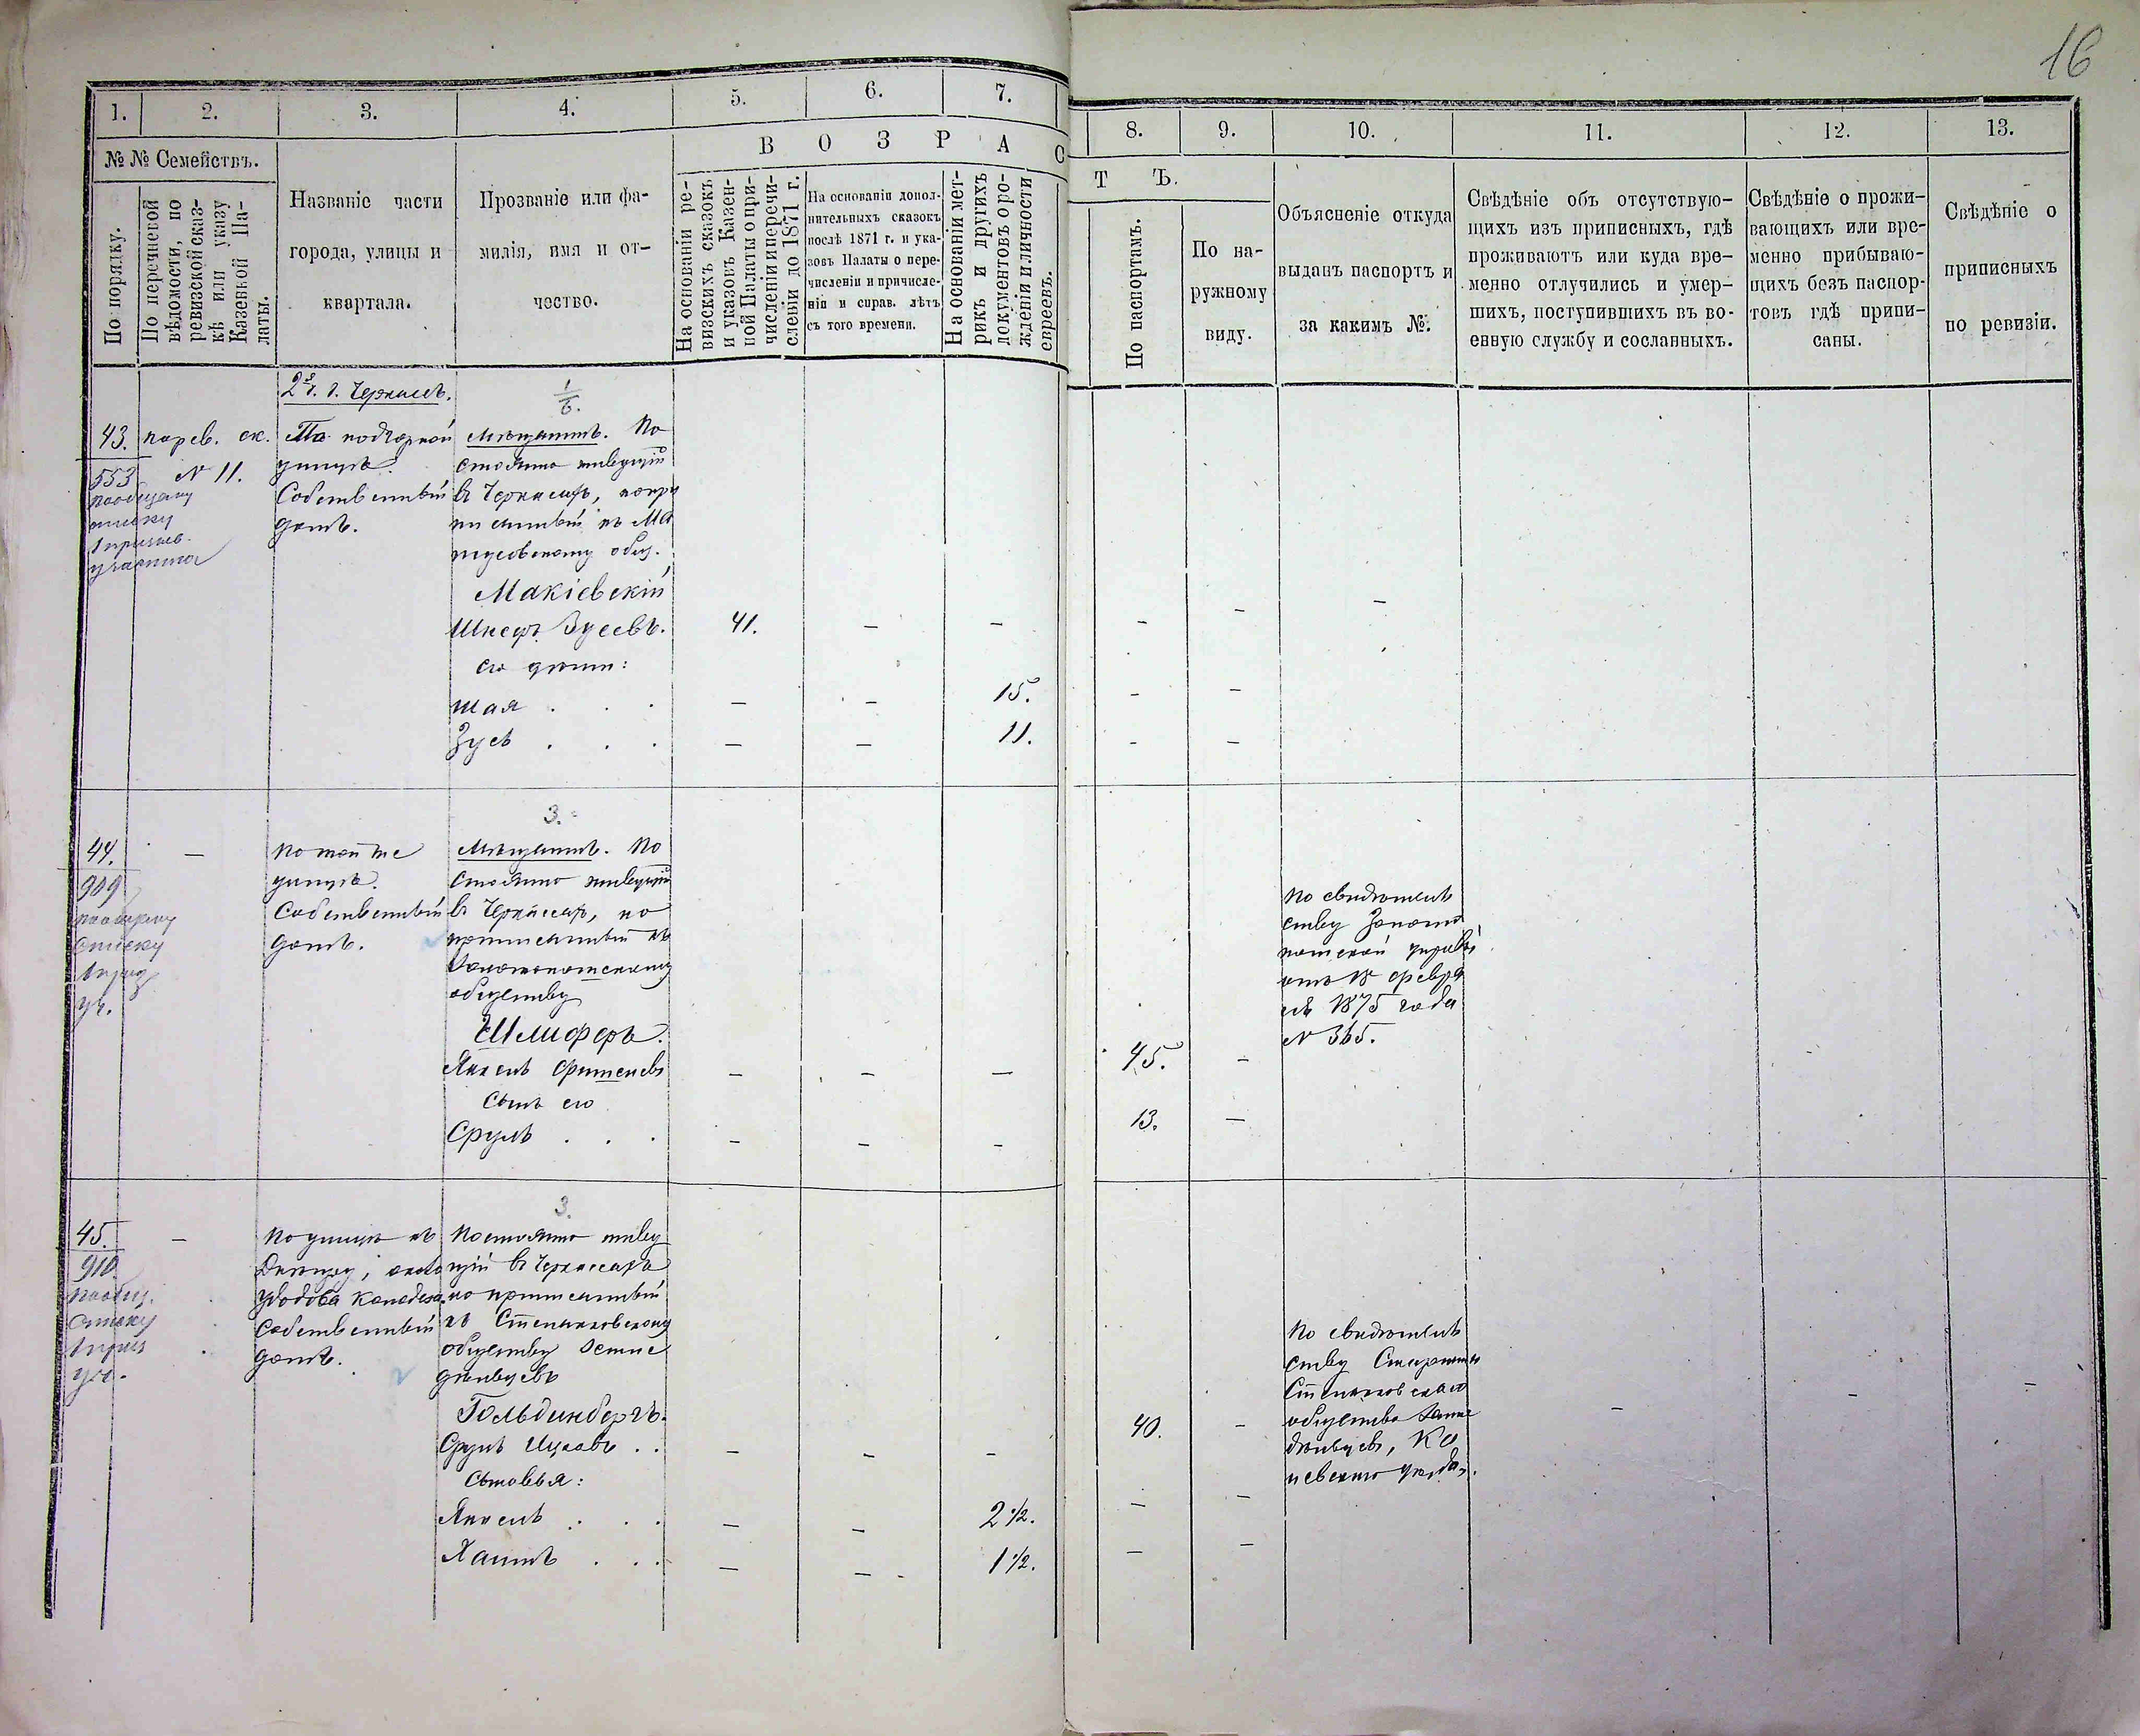 16
1. 2. 3. 4. 5. 6. 7. 8. 9. 10. 11. 12. 13.
№ № Семействъ.
По порядку.
По перечневой
вѣдомости, по
ревизской сказ-
кѣ или указу
Казенной Па-
латы.
Названіе части
города, улицы и
квартала.
Прозваніе или фа-
милія, имя и от-
чество.
ВОЗРАСТЪ.
На основаніи ре-
визскихъ сказокъ
и указовъ Казен-
ной Палаты о при-
численіи и перечи-
сленіи до 1871 г.
На основаніи допол-
нительныхъ сказокъ
послѣ 1871 г. и ука-
зовъ Палаты о пере-
численіи и причисле-
ніи и справ. лѣтъ
съ того времени.
На основаніи мет-
рикъ и другихъ
документовъ о ро-
жденіи и личности
евреевъ.
По паспортамъ.
По на-
ружному
виду.
Объясненіе откуда
выданъ паспортъ и
за какимъ №.
Свѣдѣніе объ отсутствую-
щихъ изъ приписныхъ, гдѣ
проживаютъ или куда вре-
менно отлучились и умер-
шихъ, поступившихъ въ во-
енную службу и сосланныхъ.
Свѣдѣніе о прожи-
вающихъ или вре-
менно прибываю-
щихъ безъ паспор-
товъ гдѣ припи-
саны.
Свѣдѣніе о
приписныхъ
по ревизіи.
43.
553
по общему
списку
1 призыв.
участка
по рев. ск.
№ 11.
2 ч. г. Черкассъ.
По подгорной
улицѣ.
Собственный
домъ.
1/6.
Мѣщанинъ. По
стоянно живущій
въ Черкасахъ, но при
писанный къ
обще.
Макіевскій
Зусевъ. 41. — — — — —
его дѣти:
Шая . . . — — 15. — —
Зусь . . . — — 11. — —
44. —
909
по общему
списку
1 приз.
уч.
по той же
улицѣ.
Собственный
домъ.
3.
Мѣщанинъ. По
стоянно живущій
въ Черкассахъ, но
приписанный къ
Золотоношскому
обществу
Шлиферъ.
Янкель — — — 45. —
Сынъ его
Сруль . . . — — — 13. —
По свидѣтель
ству Золото
ношской управы
отъ 18 февра
ля 1875 года
№ 365.
45. —
910
по общ.
списку
1 приз
уч.
по улицѣ къ
Днѣпру, около
Колодезя.
Собственный
домъ.
3.
Постоянно живу
щій въ Черкассахъ
но приписанный
къ Степанковскому
обществу земле
дѣльцевъ
Гольдинбергъ.
Сруль Ицковъ . . — — — 40. —
Сыновья:
Янкель . . . — — 2 1/2. — —
Хаимъ . . . — — 1 1/2. — —
По свидѣтель
ству Старосты
Степанковскаго
общества земле
дѣльцевъ, Ка
невскаго уѣзда.
— — —